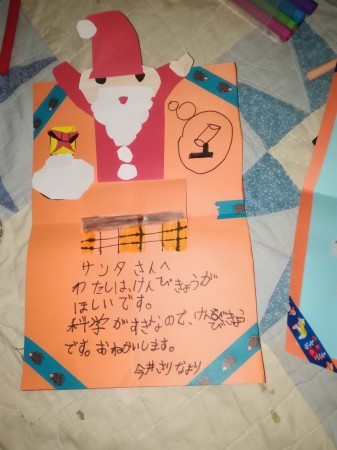 サンタさんへ
わたしは、けんびきょうが
ほしいです。
科学がすきなので、けんびきょう
です。おねがいします。
今井さりなより